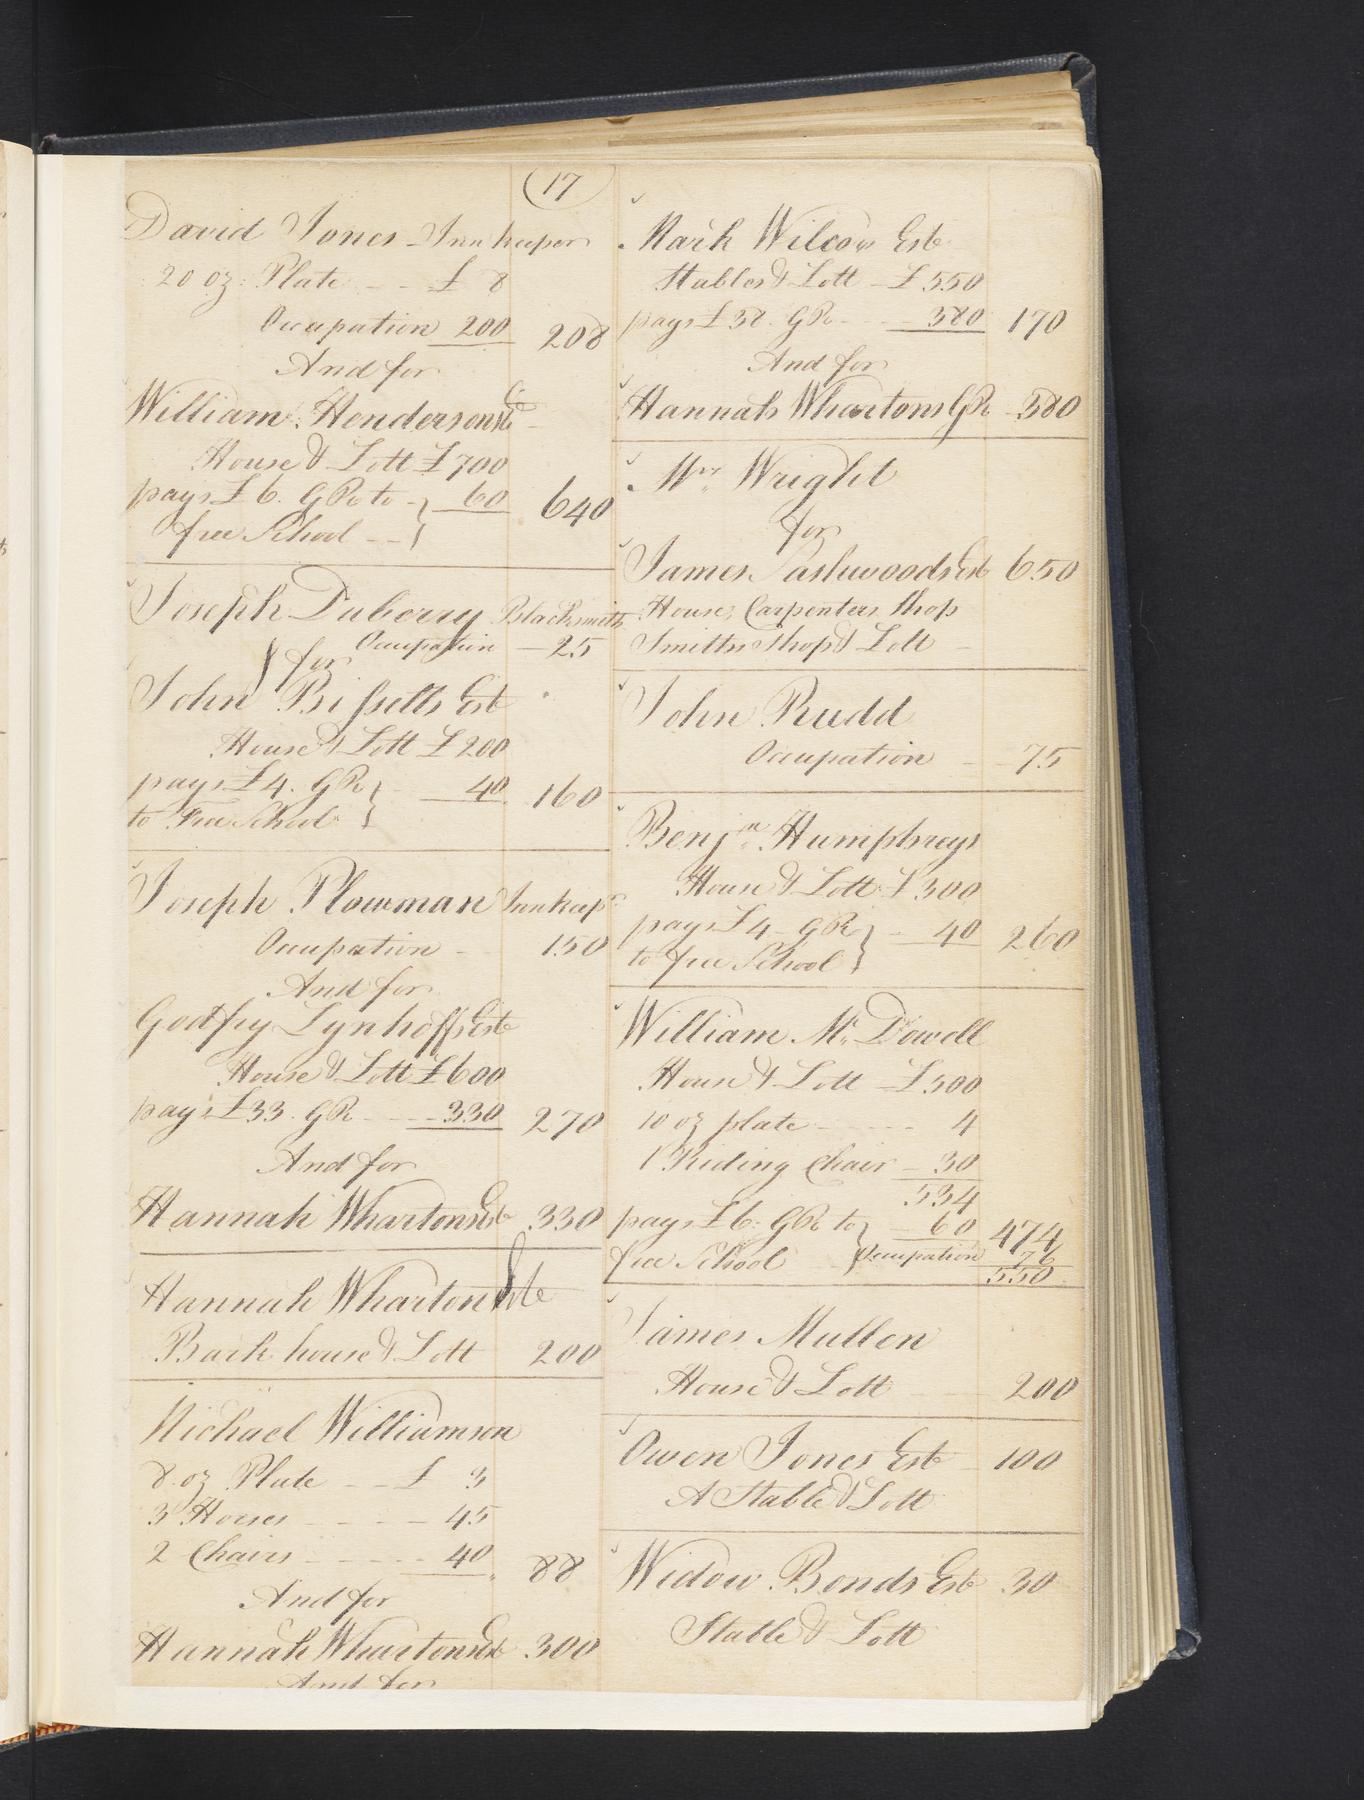 17
David Jones Innkeeper
20 oz: Plate - - £ 8
Occupation 200 208
And for
William Hendersons Est
House & Lott £700
pays £6. G Rt to 60 640
free School
Joseph Duberry Blacksmith
Occupation 25
for
John Bissells Est
House & Lott £200
pays £4. G R 40 160
to Free School
Joseph Plowman Innkeepr
Occupation 150
And for
Godfry Lynhoffs Este
House & Lott £600
pays £33. G R 330 270
And for
Hannah Whartons Est 330
Hannah Whartons Este
Back house & Lott 200
Michael Williamson
8. oz Plate - - £ 3
3 Horses 45
2 Chairs 40 88
And for
Hannah Whartons Est 300
And for
Mark Wilcox Este
Stables & Lott - £550
pays £38. G Rt 380 170
And for
Hannah Whartons G Rt 380
Mrs Wright
for
James Pashwoods Est 650
House, Carpenters Shop
Smiths Shop & Lott
John Rudd
Occupation 75
Benjn Humphreys
House & Lott £300
pays £4 G R 40 260
to free School
William Mc Dowell
House & Lott £500
10 oz plate 4
1 Riding Chair 30
534
pays £6: G Rt to 60 474
free School Occupation 76
550
James Mullen
House & Lott 200
Owen Jones Este 100
A Stable & Lott
Widow Bonds Este 30
Stable & Lott